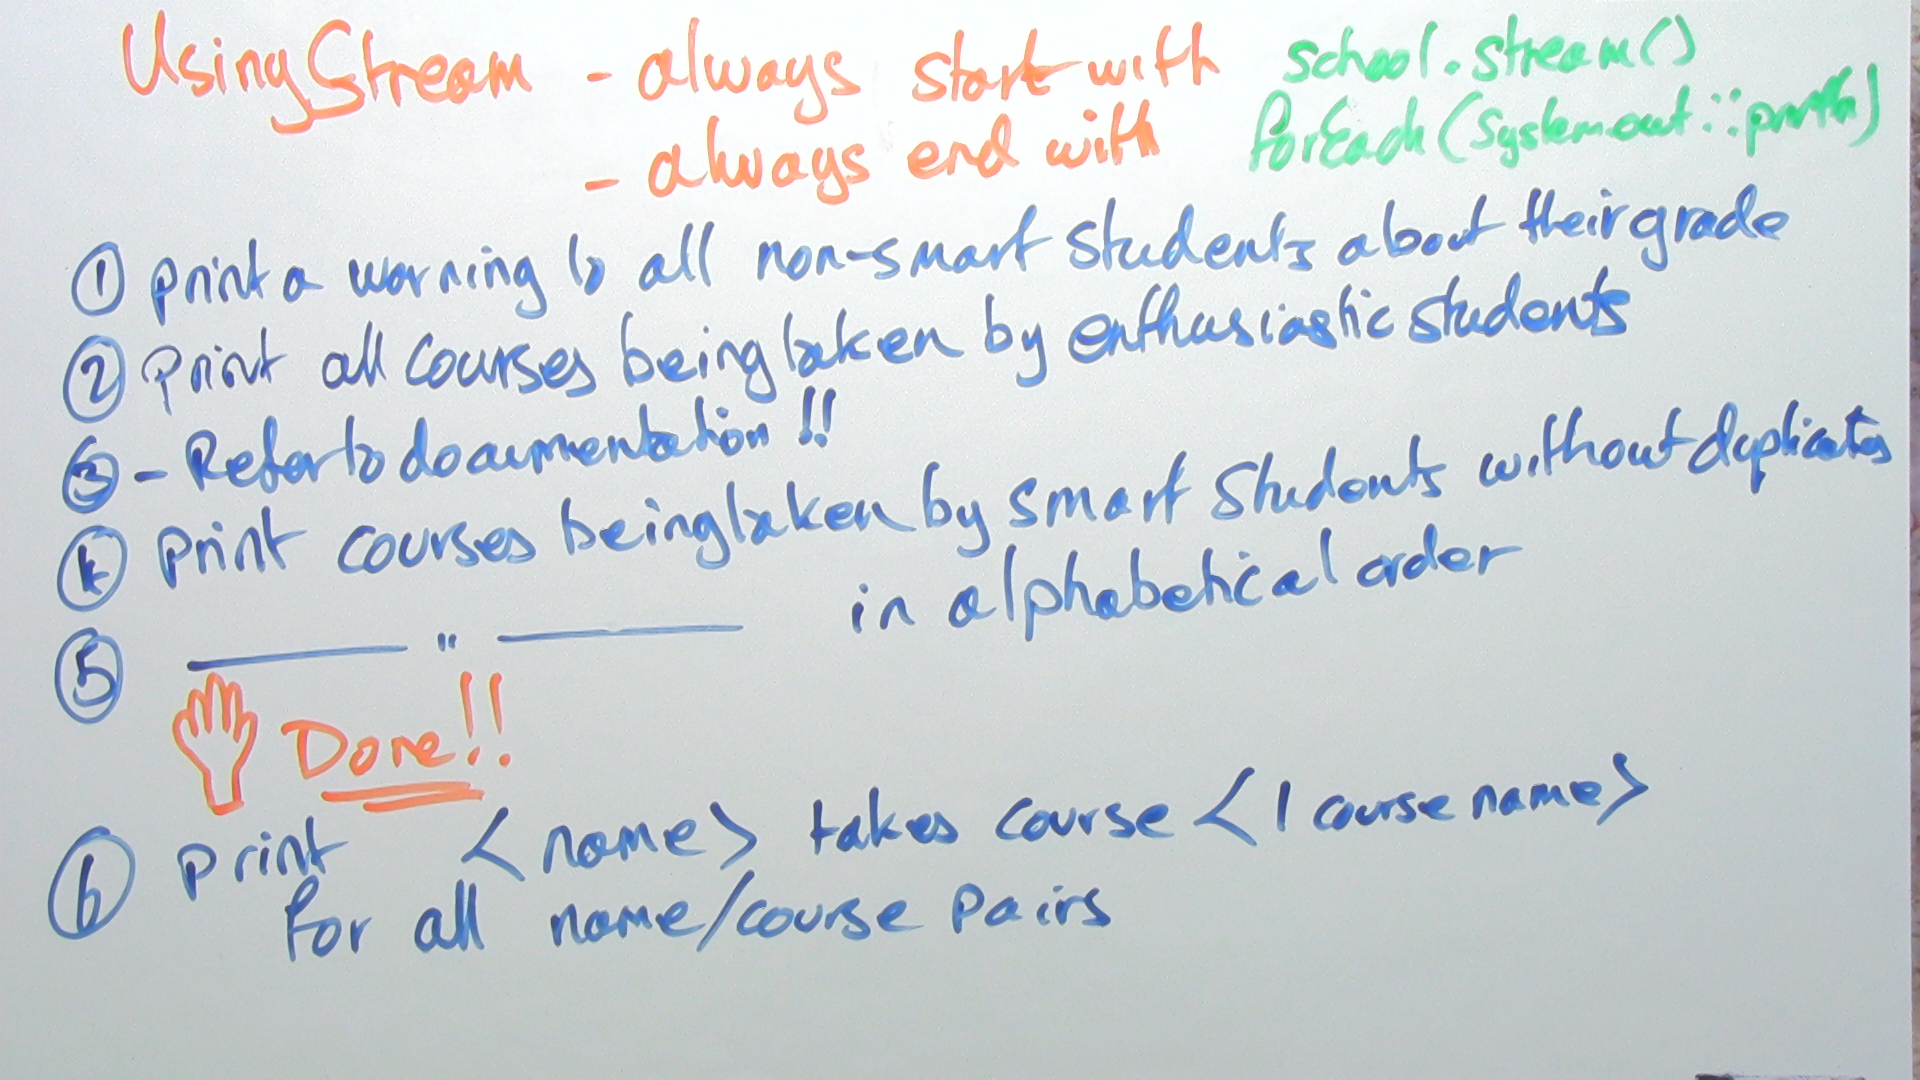 Using Stream - always start with school.stream()
- always end with forEach(System.out::println)
① print a warning to all non-smart students about their grade
② print all courses being taken by enthusiastic students
③ - Refer to documentation!!
④ print courses being taken by smart students without duplicates
⑤ —— " —— in alphabetical order
Done!!
⑥ print <name> takes course <1 course name>
for all name/course pairs